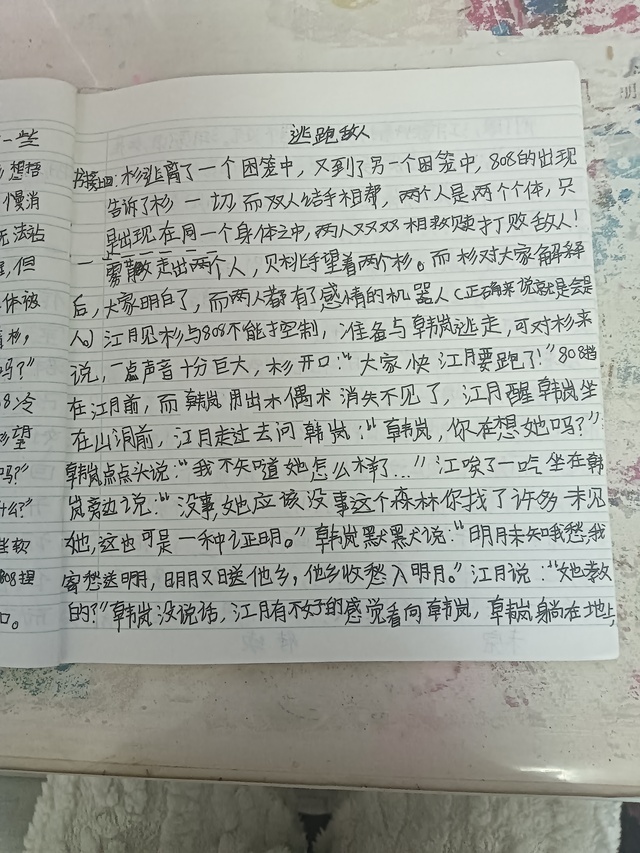 一些
想捂
慢消
无法站
,但
体被
吗?"
8冷
望
吗?"
什么?"
坐软
808捏
口。
逃跑敌人
书接上回:杉逃离了一个困笼中,又到了另一个困笼中,808的出现
告诉了杉一切,而双人结手相帮,两个人是两个个体,只
是出现在同一个身体之中,两人双双相救赎打败敌人!
雾散走出两个人,贝桃呼望着两个杉。而杉对大家解释
后,大家明白了,而两人都有了感情的机器人(正确来说就是会是
人。)江月见杉与808不能才空制,准备与韩岚逃走,可对杉来
说,一点声音十分巨大,杉开口:"大家快江月要跑了!"808挡
在江月前,而韩岚用出木偶术消失不见了,江月醒韩岚坐
在山洞前,江月走过去问韩岚:"韩岚,你在想她吗?"
韩岚点点头说:"我不知道她怎么样了..."江唉了一吃坐在韩
岚旁边说:"没事,她应该没事这个森林你找了许多未见
她,这也可是一种证明。"韩岚默默说:"明月未知我愁,我
寄愁送明月,明月又送他乡,他乡收愁入明月。"江月说:"她教
的?"韩岚没说话,江月有不好的感觉看向韩岚,韩岚躺在地上,